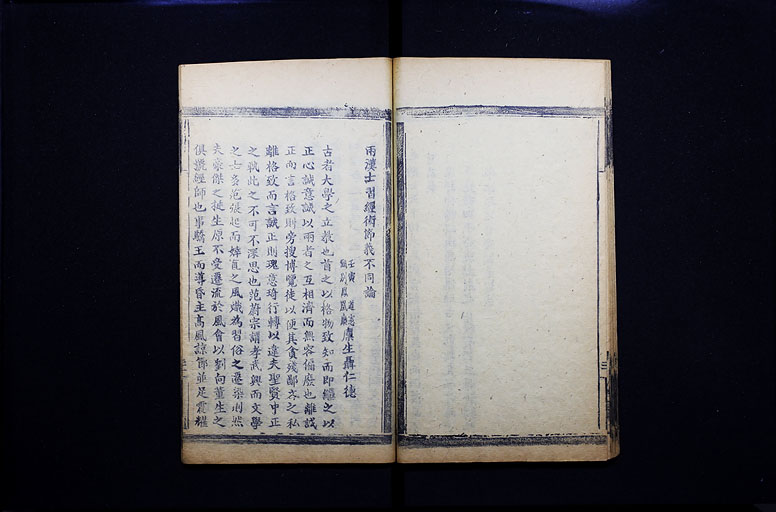 兩漢士習經術節義不同論
壬寅
廩生聶仁德
古者大學之立敎也首之以格物致知而即繼之以
正心誠意誠以兩者之互相濟而無容偏廢也離誠
正而言格致則旁搜博覽徒以便其貪殘鄙吝之私
離格致而言誠正則瑰意琦行轉以違夫聖賢中正
之軌此之不可不深思也范蔚宗謂孝武興而文學
之士多范張起而婞直之風熾為習俗之遷染則然
夫豪傑之挺生原不受遷流於風會以劉向董生之
俱號經師也事驕王而導昏主高風諒節並足震耀
三